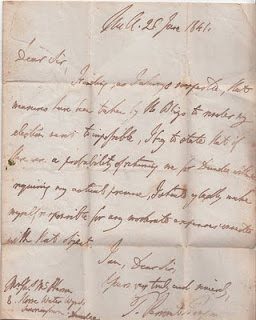 Hull. 25 June 1841.
Dear Sir,
Finding, as I always suspected, that
measures have been taken by the Whigs to render my
election next to impossible, I beg to state that if
there is a probability of returning me for Dundee without
requiring my actual presence, I shall gladly make
myself responsible for any moderate expenses connected
with that object.
I am, Dear Sir,
Yours very truly and sincerely
T.
Dundee